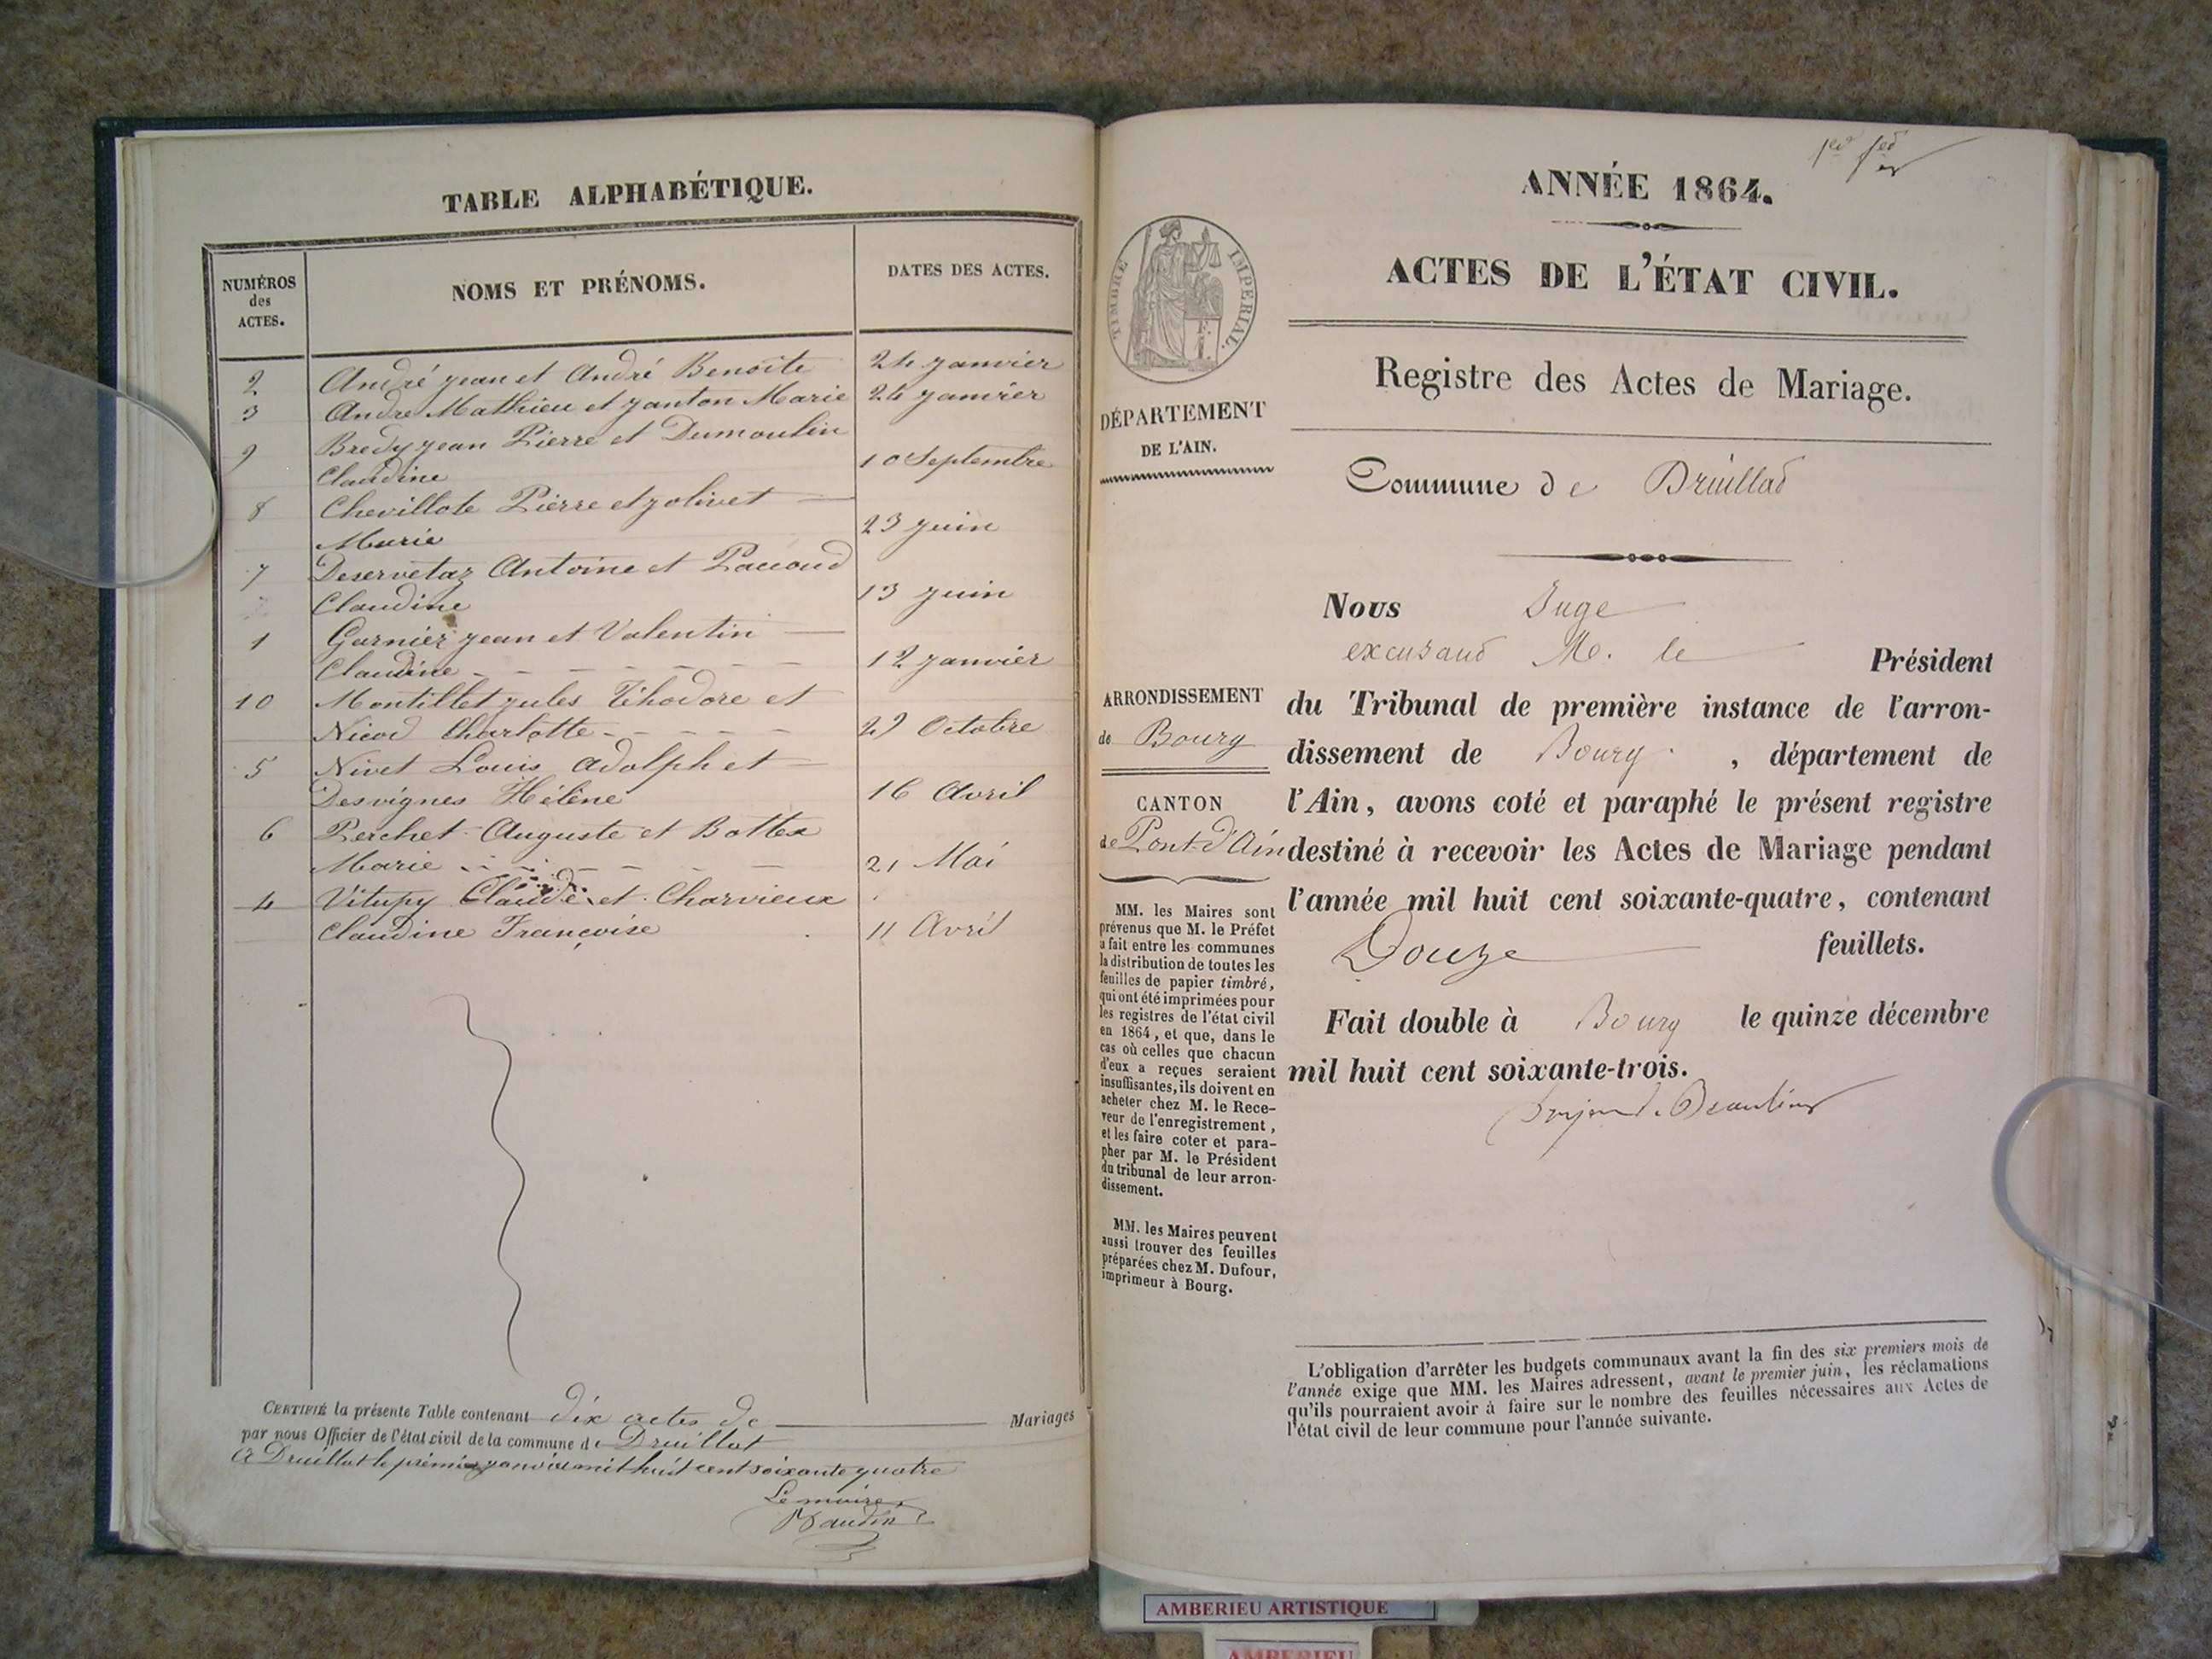 TABLE ALPHABÉTIQUE.
NUMÉROS
des
ACTES.
NOMS ET PRÉNOMS.
DATES DES ACTES.
2 André jean et André Benoite 24 janvier
3 André Mathieu et janton Marie 24 janvier
9 Bredy jean Pierre et Dumoulin
Claudine 10 Septembre
8 Chevillote Pierre et jolivet
Marie 23 juin
7 Deservetaz Antoine et Pauoud
Claudine 13 juin
1 Garnier jean et Valentin
Claudine 12 janvier
10 Montillet jules Théodore et
Nicod Charlotte 29 Octobre
5 Nivet Louis adolph et
Desvignes Hélène 16 Avril
6 Perchet Auguste et Bottex
Marie 21 Mai
4 Vitupy Claude et Charvieux
Claudine Françoise 11 Avril
CERTIFIÉ la présente Table contenant dix actes de Mariages
par nous Officier de l'état civil de la commune de Druillat
A Druillat le premier janvier mil huit cent soixante quatre
Le maire
ANNÉE 1864.
ACTES DE L'ÉTAT CIVIL.
Registre des Actes de Mariage.
TIMBRE IMPÉRIAL.
DÉPARTEMENT
DE L'AIN.
Commune de Druillat
Nous Juge
excusant M. le Président
du Tribunal de première instance de l'arron-
dissement de Bourg, département de
l'Ain, avons coté et paraphé le présent registre
destiné à recevoir les Actes de Mariage pendant
l'année mil huit cent soixante-quatre, contenant
Douze feuillets.
Fait double à Bourg le quinze décembre
mil huit cent soixante-trois.
ARRONDISSEMENT
de Bourg
CANTON
de Pont-d'Ain
MM. les Maires sont
prévenus que M. le Préfet
a fait entre les communes
la distribution de toutes les
feuilles de papier timbré,
qui ont été imprimées pour
les registres de l'état civil
en 1864, et que, dans le
cas où celles que chacun
d'eux a reçues seraient
insuffisantes, ils doivent en
acheter chez M. le Rece-
veur de l'enregistrement,
et les faire coter et para-
pher par M. le Président
du tribunal de leur arron-
dissement.
MM. les Maires peuvent
aussi trouver des feuilles
préparées chez M. Dufour,
imprimeur à Bourg.
L'obligation d'arrêter les budgets communaux avant la fin des six premiers mois de
l'année exige que MM. les Maires adressent, avant le premier juin, les réclamations
qu'ils pourraient avoir à faire sur le nombre des feuilles nécessaires aux Actes de
l'état civil de leur commune pour l'année suivante.
AMBERIEU ARTISTIQUE
AMBERIEU